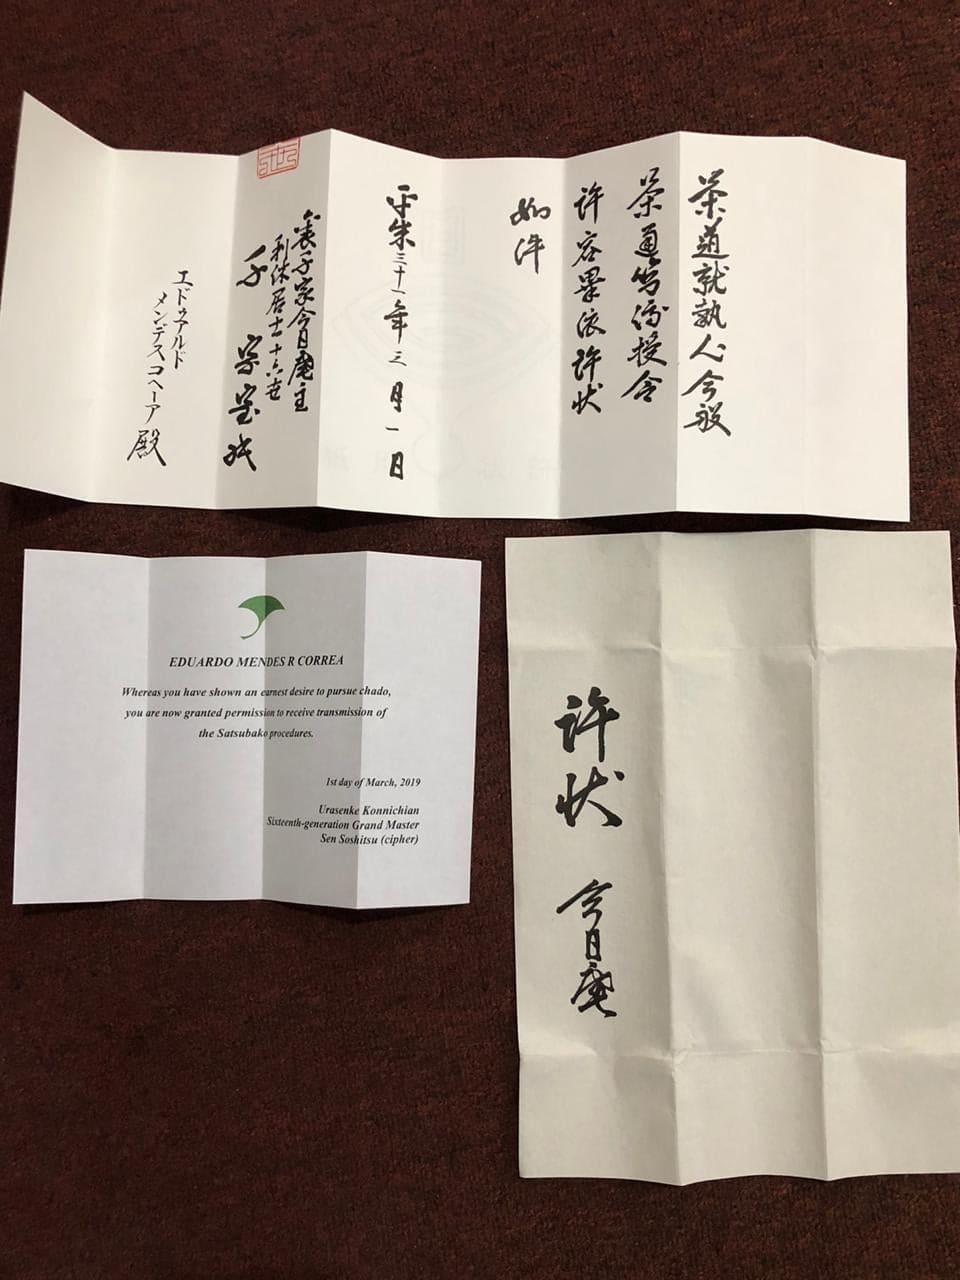 茶道就執心今般
茶通箱傳授令
許容畢依許状
如件
平成三十一年三月一日
裏千家今日庵主
利休居士十六世
千 宗室
エドゥアルド
メンデスコヘーア 殿
EDUARDO MENDES R CORREA
Whereas you have shown an earnest desire to pursue chado,
you are now granted permission to receive transmission of
the Satsubako procedures.
1st day of March, 2019
Urasenke Konnichian
Sixteenth-generation Grand Master
Sen Soshitsu (cipher)
許状 今日庵